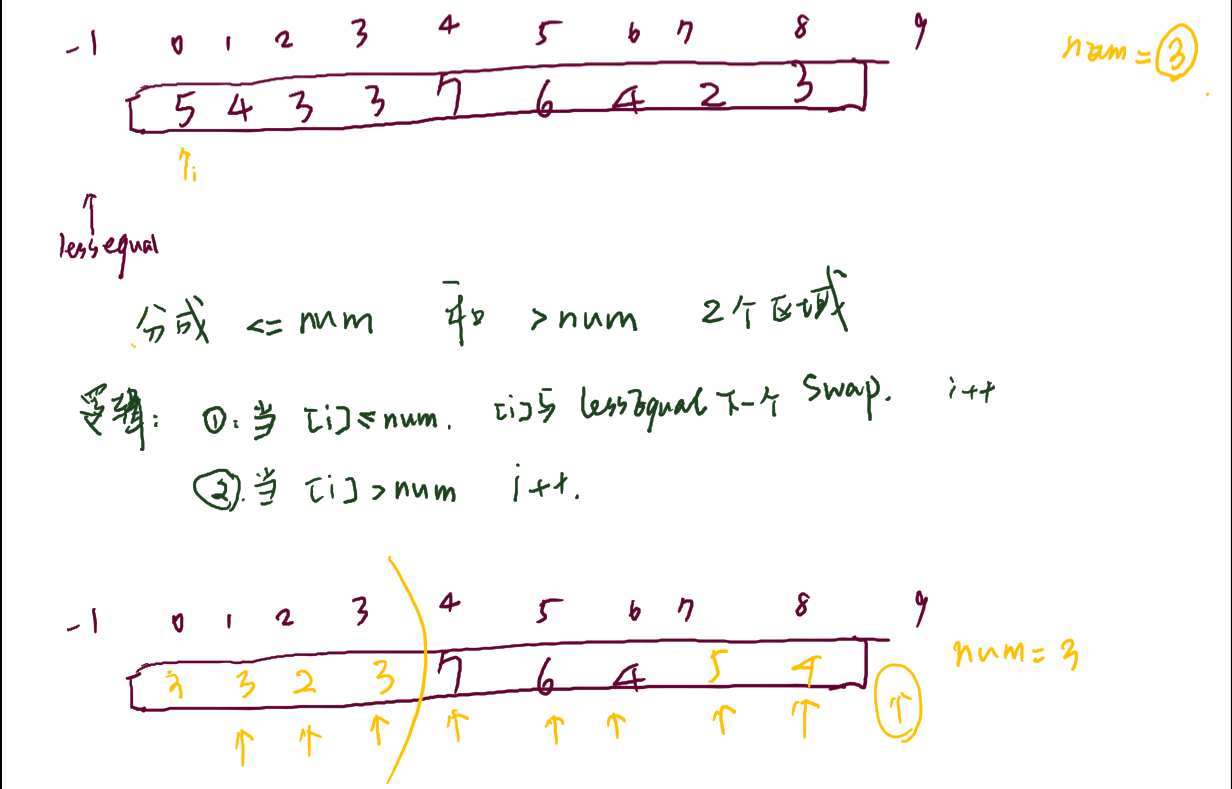 -1 0 1 2 3 4 5 6 7 8 9
num = 3
5 4 3 3 7 6 4 2 3
↑i
↑
lessequal
分成 <= num 和 > num 2个区域
逻辑: ①.当 [i]≤num. [i]与 lessEqual 下一个 Swap. i++
②.当 [i]>num i++.
-1 0 1 2 3 4 5 6 7 8 9
3 3 2 3 7 6 4 5 4
num = 3
↑ ↑ ↑ ↑ ↑ ↑ ↑ ↑ ↑